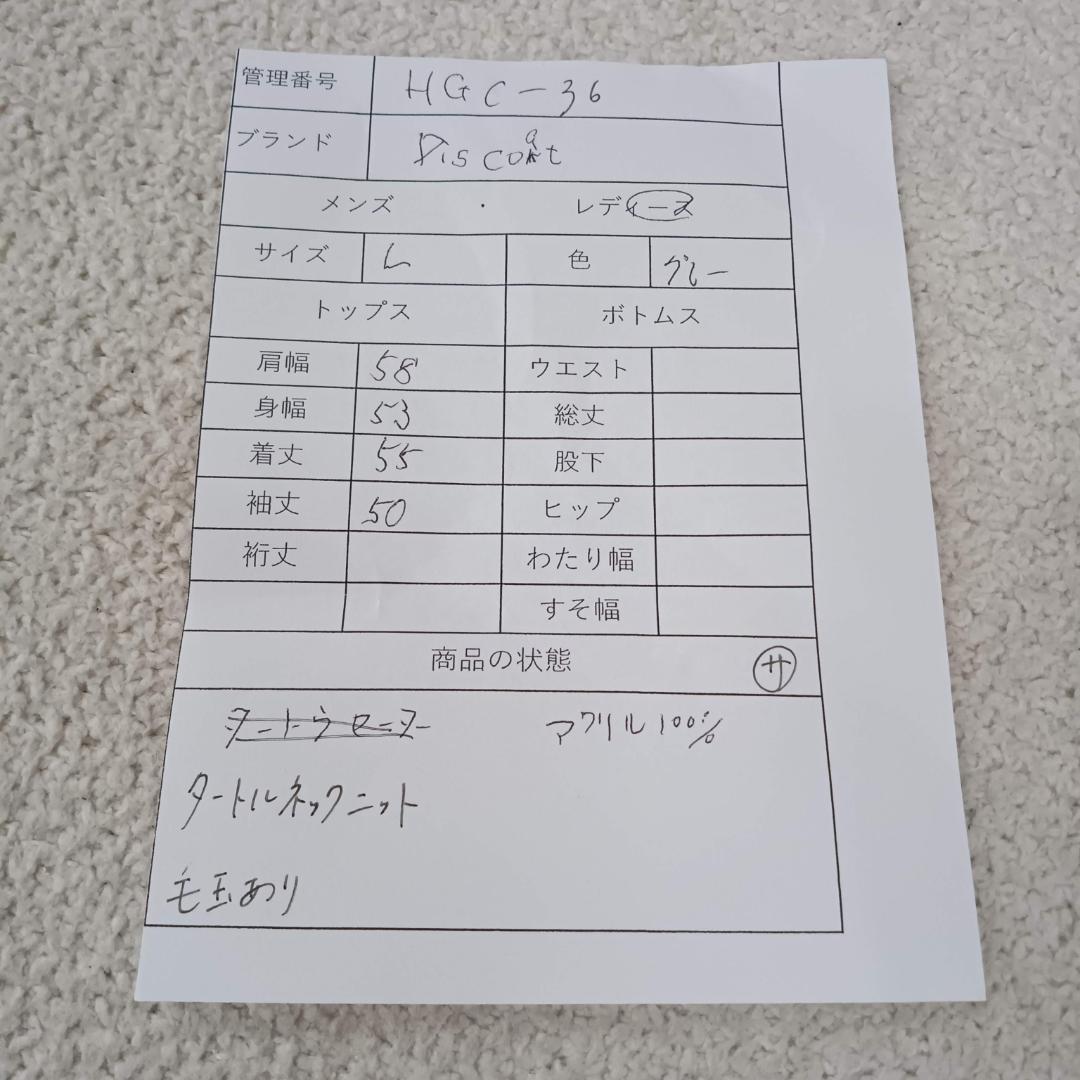 管理番号 HGC-36
ブランド Discoat
メンズ ・ レディース
サイズ L 色 グレー
トップス ボトムス
肩幅 58 ウエスト
身幅 53 総丈
着丈 55 股下
袖丈 50 ヒップ
裄丈 わたり幅
すそ幅
商品の状態 サ
アクリル100%
タートルネックニット
毛玉あり